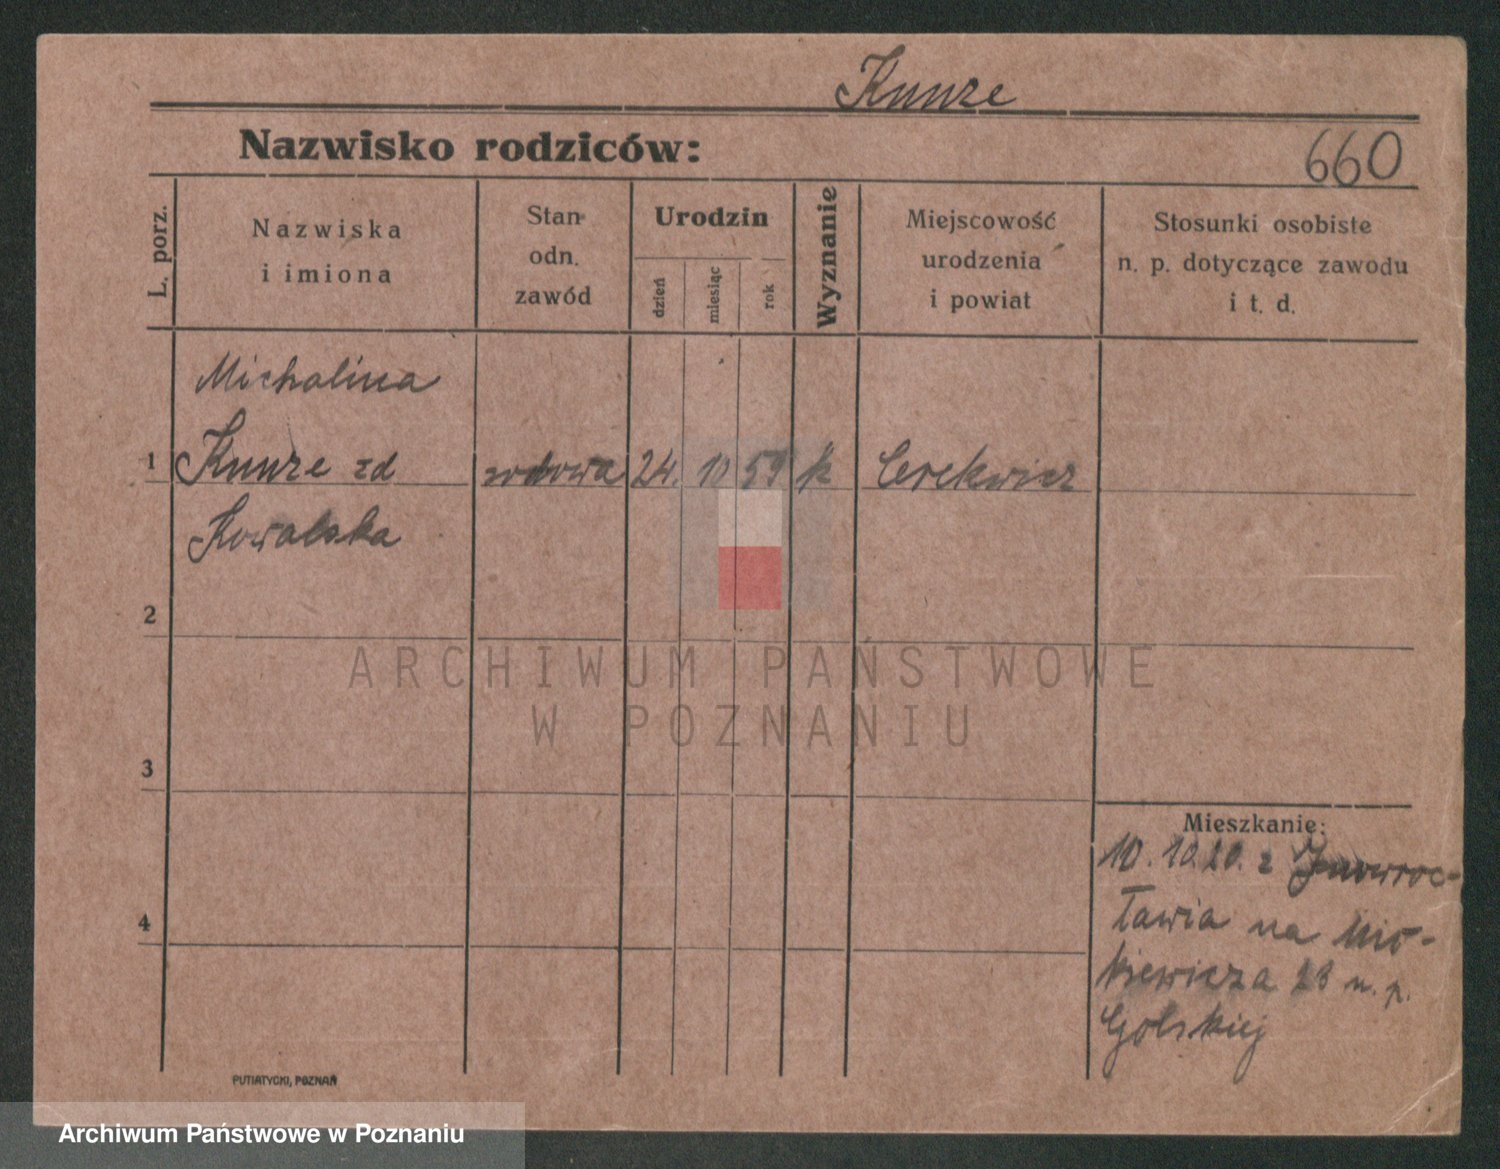 Kunze
Nazwisko rodziców:
660
L. porz.
Nazwiska
i imiona
Stan
odn.
zawód
Urodzin
dzień
miesiąc
rok
Wyznanie
Miejscowość
urodzenia
i powiat
Stosunki osobiste
n. p. dotyczące zawodu
i t. d.
Michalina
1 Kunze zd wdowa 24. 10 59 k Cerekwicz
Kowalska
2
3
4
Mieszkanie:
10. 10.20. z Inowroc-
ławia na Mic-
kiewicza 23 n. p.
Golskiej
PUTIATYCKI, POZNAŃ
ARCHIWUM PAŃSTWOWE
W POZNANIU
Archiwum Państwowe w Poznaniu